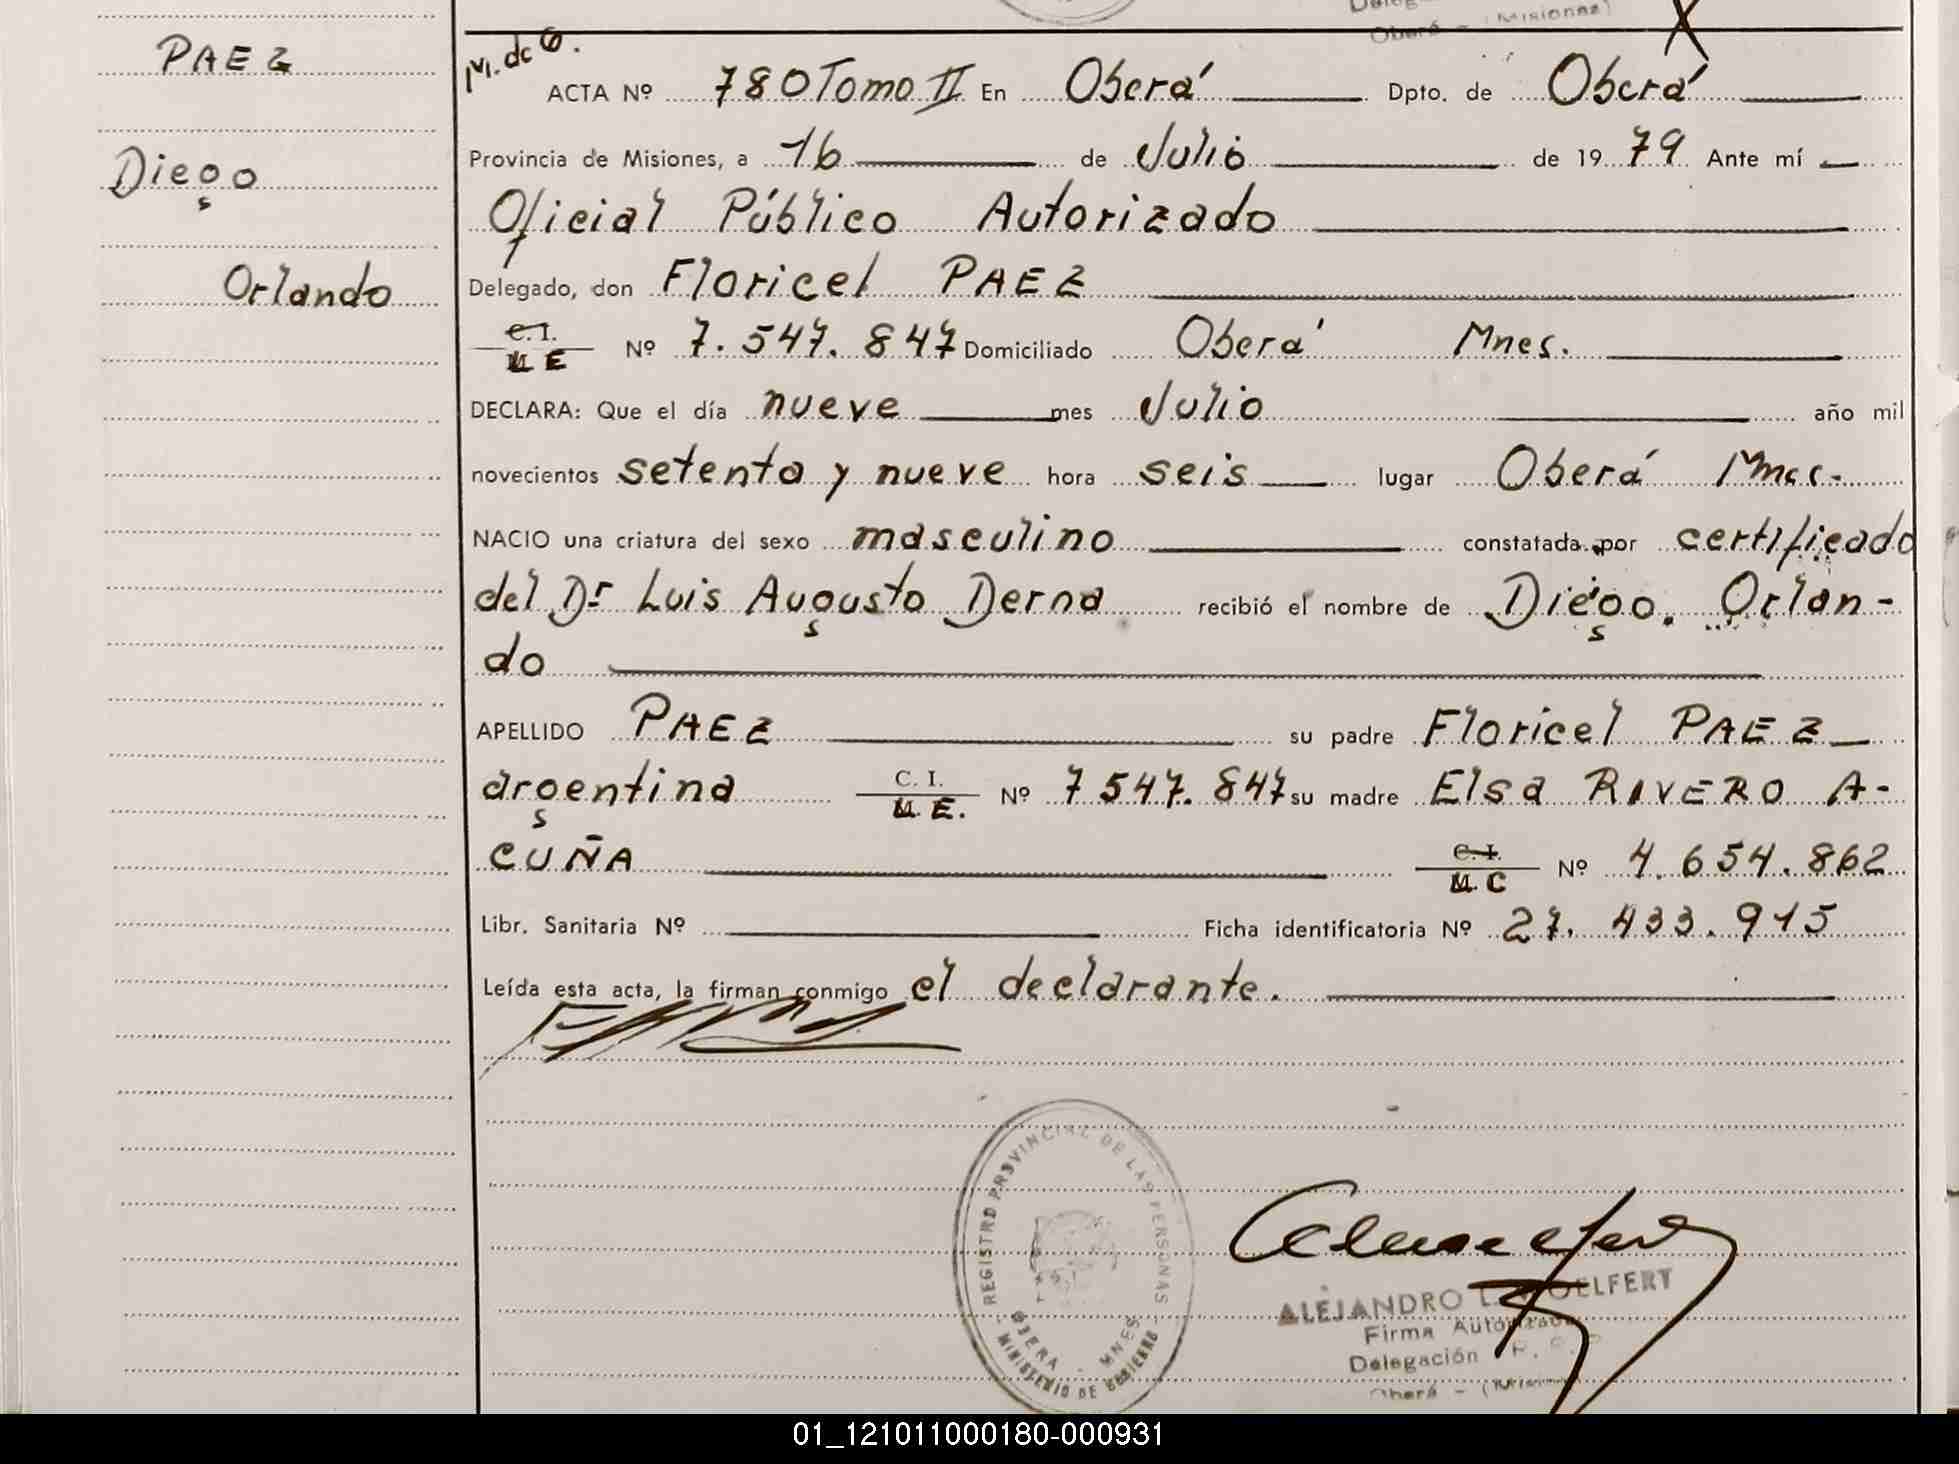 PAEZ
Diego
Orlando
M. de G.
ACTA Nº 780 Tomo II En Oberá Dpto. de Oberá
Provincia de Misiones, a 16 de Julio de 1979 Ante mí
Oficial Público Autorizado
Delegado, don Floricel PAEZ
C. I.
M E Nº 7.547.847 Domiciliado Oberá Mnes.
DECLARA: Que el día nueve mes Julio año mil
novecientos setenta y nueve hora seis lugar Oberá Mnes.
NACIO una criatura del sexo masculino constatada por certificado
del Dr Luis Augusto Derna recibió el nombre de Diego. Orlan-
do
APELLIDO PAEZ su padre Floricel PAEZ
argentina C. I. M. E. Nº 7547.847 su madre Elsa RIVERO A-
CUÑA C. I. M. C Nº 4.654.862
Libr. Sanitaria Nº Ficha identificatoria Nº 27.433.915
Leída esta acta, la firman conmigo el declarante.
REGISTRO PROVINCIAL DE LAS PERSONAS
OBERA - MNES
MINISTERIO DE GOBIERNO
ALEJANDRO L. OELFERT
Firma Autorizada
Delegación R.
Oberá - (Misiones)
01_121011000180-000931